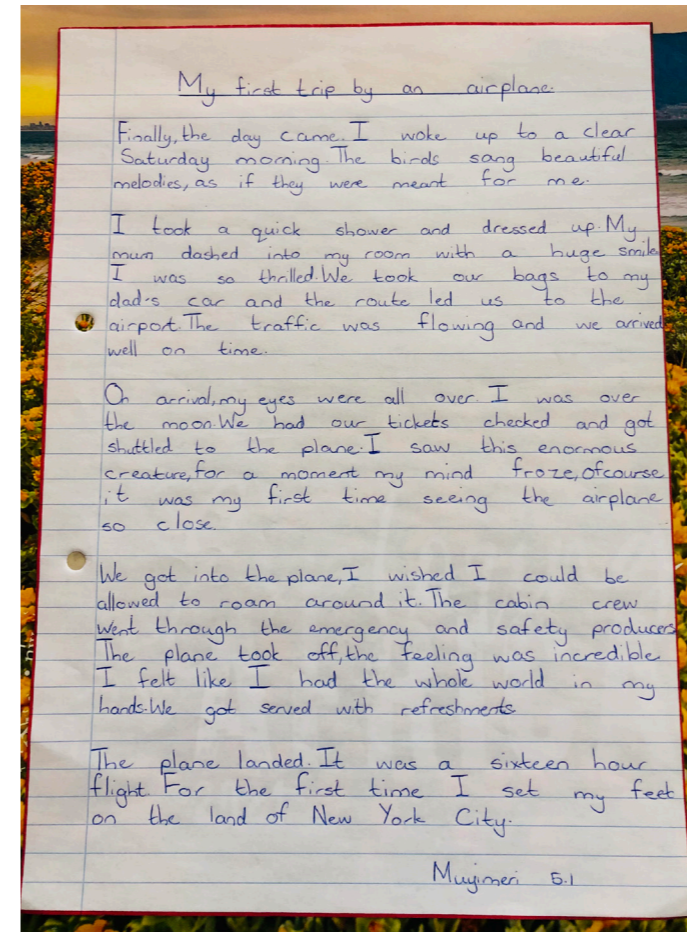 My first trip by an airplane.
Finally, the day came. I woke up to a clear
Saturday morning. The birds sang beautiful
melodies, as if they were meant for me.
I took a quick shower and dressed up. My
mum dashed into my room with a huge smile
I was so thrilled. We took our bags to my
dad's car and the route led us to the
airport. The traffic was flowing and we arrived
well on time.
On arrival, my eyes were all over. I was over
the moon. We had our tickets checked and got
shuttled to the plane. I saw this enormous
creature, for a moment my mind froze, ofcourse
it was my first time seeing the airplane
so close.
We got into the plane, I wished I could be
allowed to roam around it. The cabin crew
went through the emergency and safety producers
The plane took off, the feeling was incredible
I felt like I had the whole world in my
hands. We got served with refreshments
The plane landed. It was a sixteen hour
flight. For the first time I set my feet
on the land of New York City.
Muyimeri 5.1